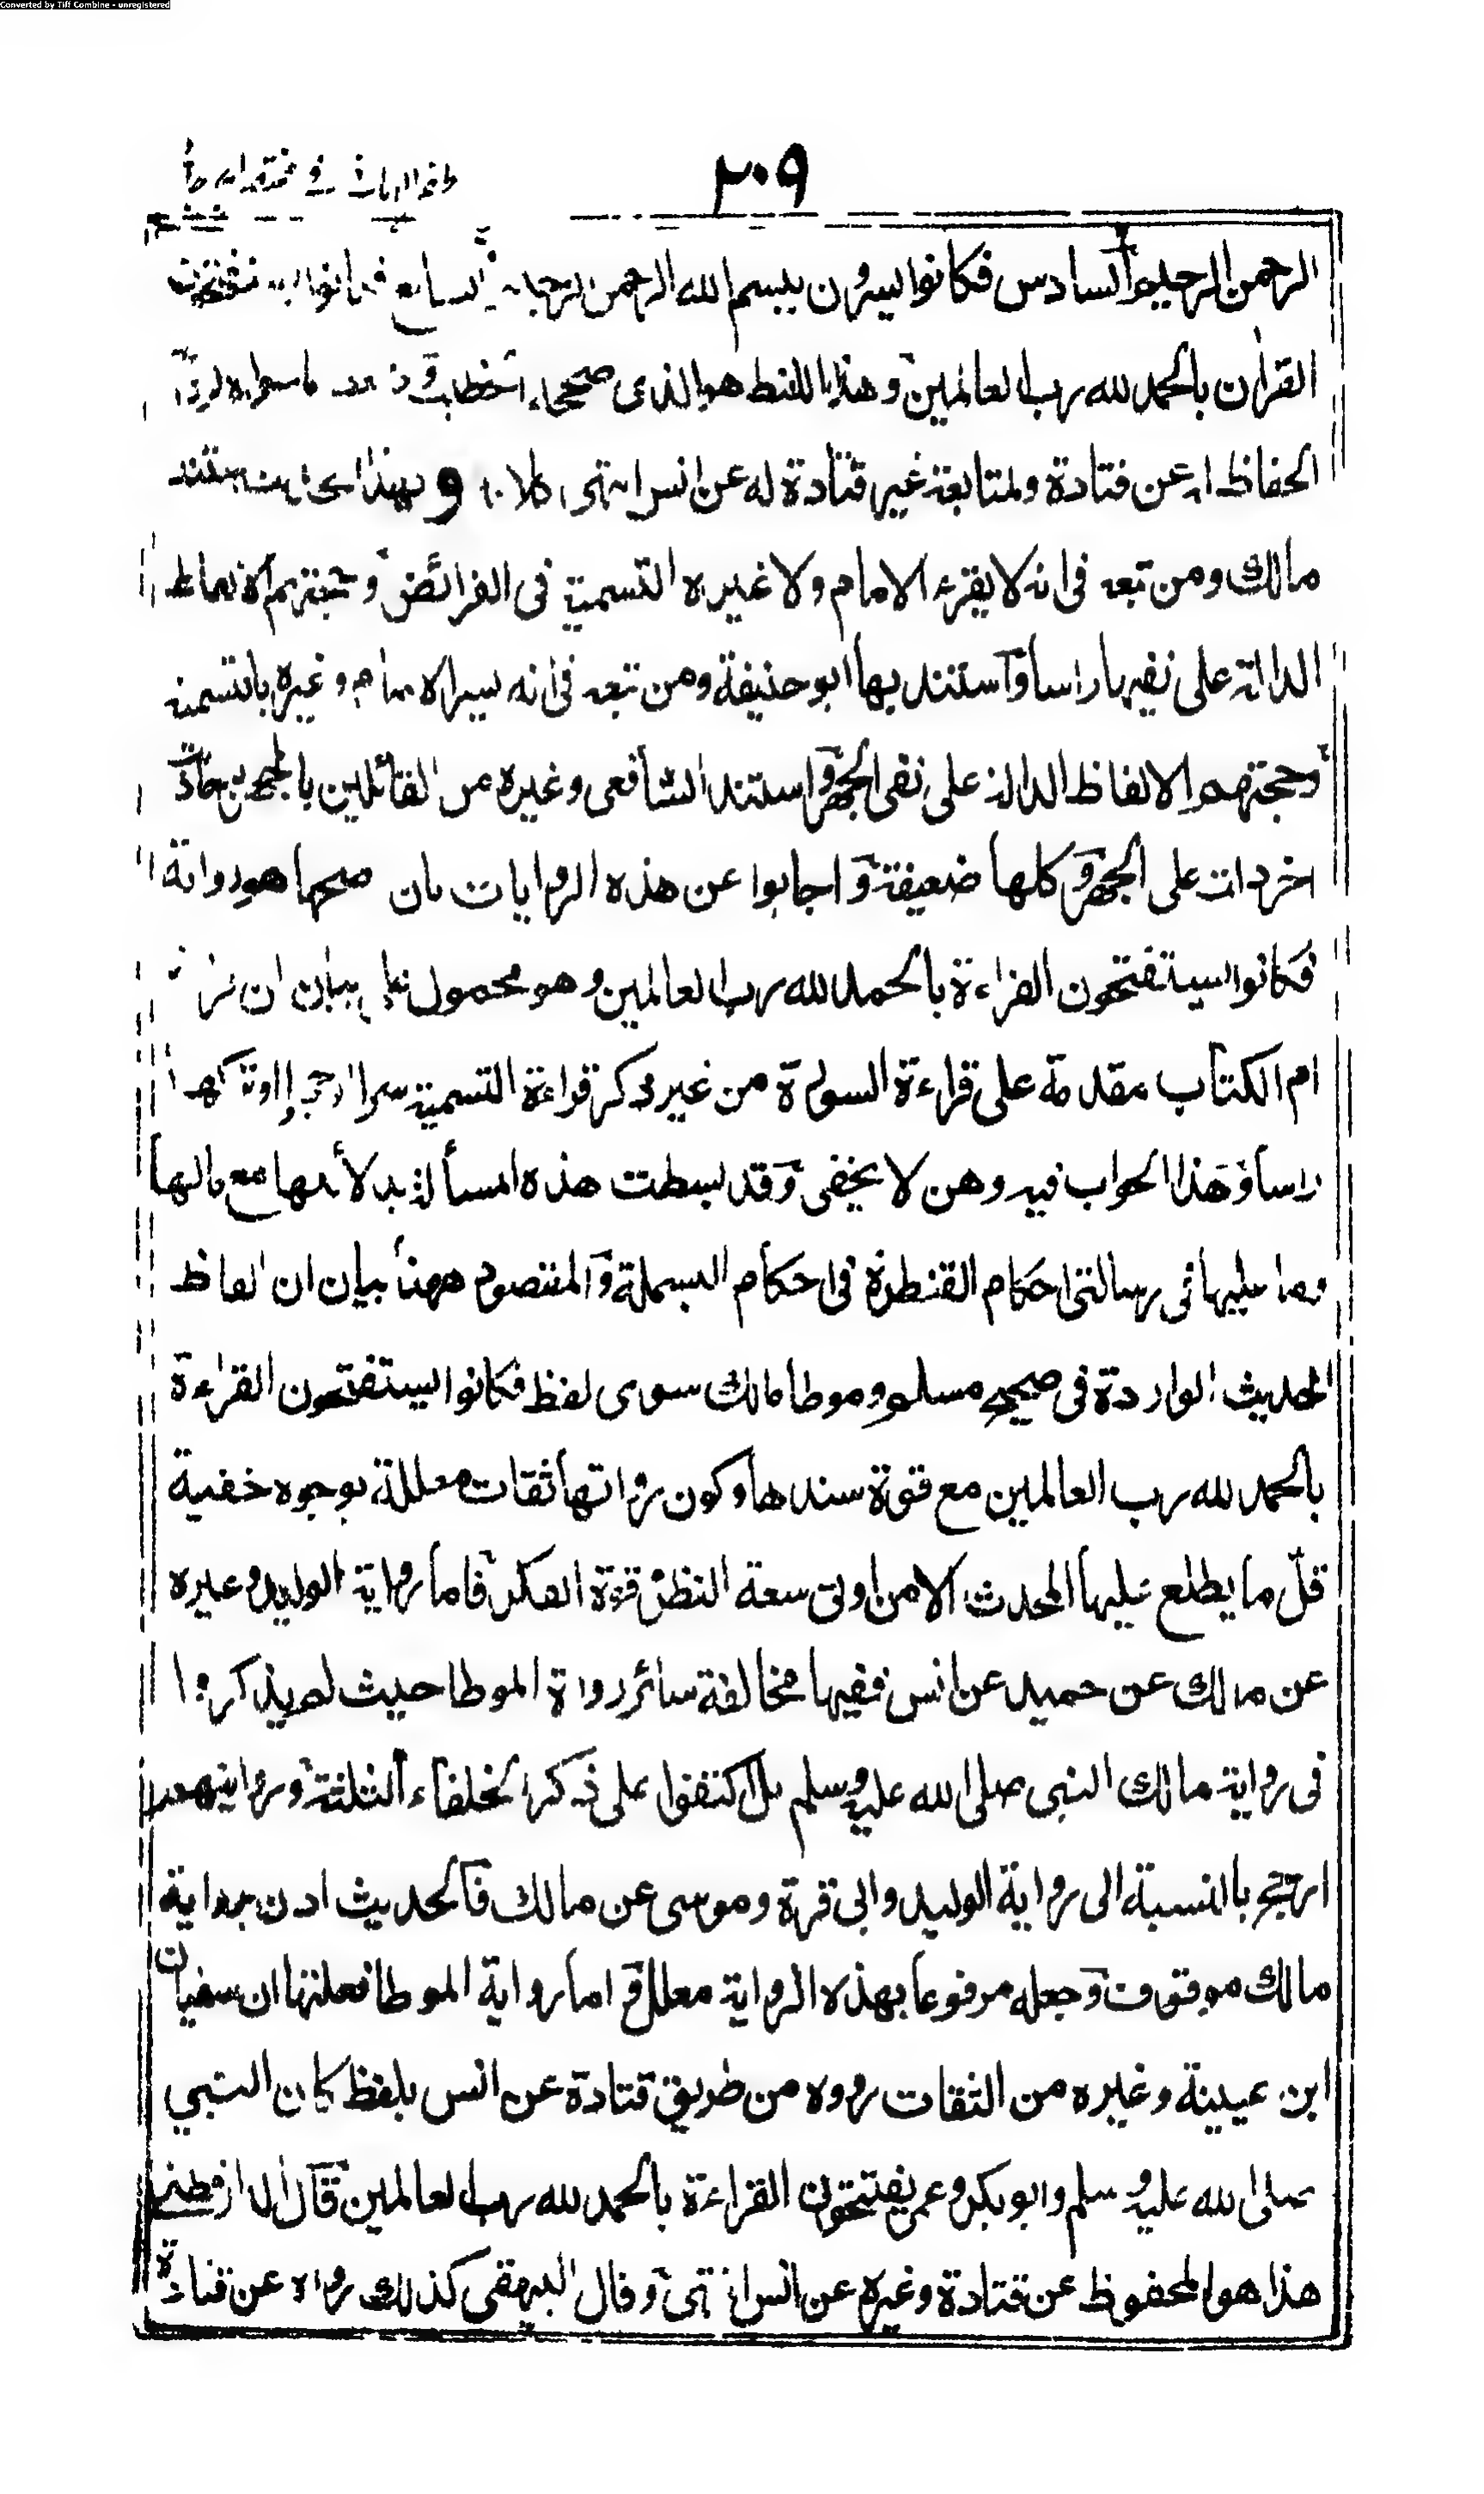 Converted by Tiff Combine - unregistered
٢٠٩
الرحمن الرحيم والسادس فكانوا يسرون ببسم الله الرحمن الرحيم السابع فكانوا
القران بالحمد لله رب العالمين وهذا اللفظ هو الذي صححه الخطيب ما سواه
الحفاظ له عن قتادة ولمتابعة غير قتادة له عن انس انتهى كلامه وبهذا الحديث استند
مالك ومن تبعه في انه لا يقرء الامام ولا غيره التسمية في الفرائض وحجتهم الالفاظ
الدالة على نفيها راسا واستند بها ابو حنيفة ومن تبعه في انه يسر الامام وغيره بالتسمية
وحجتهم الالفاظ الدالة على نفي الجهر واستند الشافعي وغيره من القائلين بالجهر
اخر دالة على الجهر وكلها ضعيفة واجابوا عن هذه الروايات بان اصحها هو رواية
فكانوا يستفتحون القراءة بالحمد لله رب العالمين وهو محمول على بيان ان
ام الكتاب مقدمة على قراءة السورة من غير ذكر قراءة التسمية سرا او جهرا او تركها
راسا وهذا الجواب فيه وهن لا يخفى وقد بسطت هذه المسألة بدلائلها مع ما لها
وما عليها في رسالتي احكام القنطرة في احكام البسملة والمقصود ههنا بيان ان الفاظ
الحديث الواردة في صحيح مسلم وموطا مالك سوى لفظ فكانوا يستفتحون القراءة
بالحمد لله رب العالمين مع قوة سندها وكون رواتها ثقات معللة بوجوه خفية
قل ما يطلع عليها المحدث الا من اوتي سعة النظر وقوة الفكر فاما رواية الوليد وغيره
عن مالك عن حميد عن انس ففيها مخالفة سائر رواة الموطا حيث لم يذكروا
في رواية مالك النبي صلى الله عليه وسلم بل اكتفوا على ذكر الخلفاء الثلثة وروايتهم
ارجح بالنسبة الى رواية الوليد وابي قرة وموسى عن مالك فالحديث اذن برواية
مالك موقوف وجعله مرفوعا بهذه الرواية معلل واما رواية الموطا فعلتها ان سفيان
ابن عيينة وغيره من الثقات رووه من طريق قتادة عن انس بلفظ كان النبي
صلى الله عليه وسلم وابو بكر وعمر يفتتحون القراءة بالحمد لله رب العالمين قال الدارقطني
هذا هو المحفوظ عن قتادة وغيره عن انس انتهى وقال البيهقي كذلك رواه عن قتادة